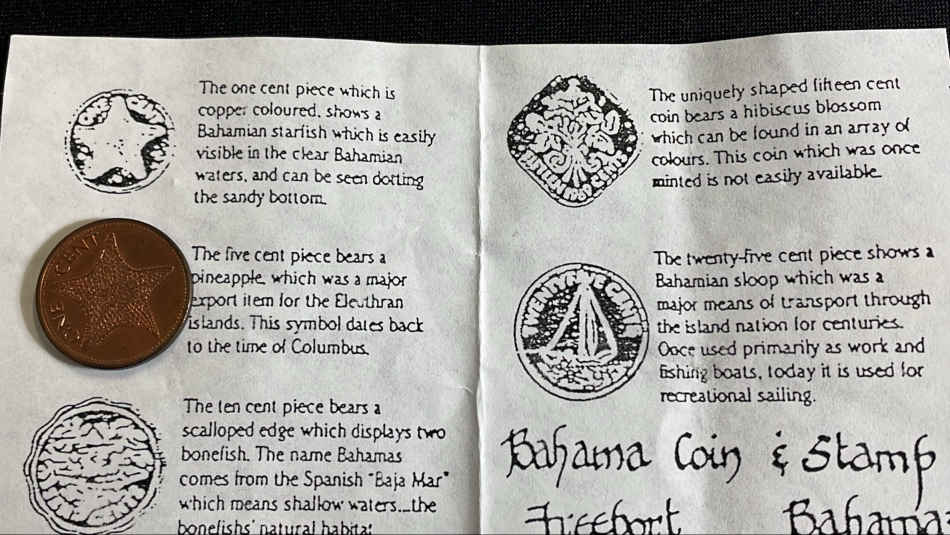 The one cent piece which is
copper coloured, shows a
Bahamian starfish which is easily
visible in the clear Bahamian
waters, and can be seen dotting
the sandy bottom.
ONE CENT
The five cent piece bears a
pineapple, which was a major
export item for the Eleuthran
islands. This symbol dates back
to the time of Columbus.
The ten cent piece bears a
scalloped edge which displays two
bonefish. The name Bahamas
comes from the Spanish "Baja Mar"
which means shallow waters...the
bonefishs' natural habitat
The uniquely shaped fifteen cent
coin bears a hibiscus blossom
which can be found in an array of
colours. This coin which was once
minted is not easily available.
TWENTY-FIVE CENTS
The twenty-five cent piece shows a
Bahamian sloop which was a
major means of transport through
the island nation for centuries.
Once used primarily as work and
fishing boats, today it is used for
recreational sailing.
Bahama Coin & Stamp
Freeport Bahamas